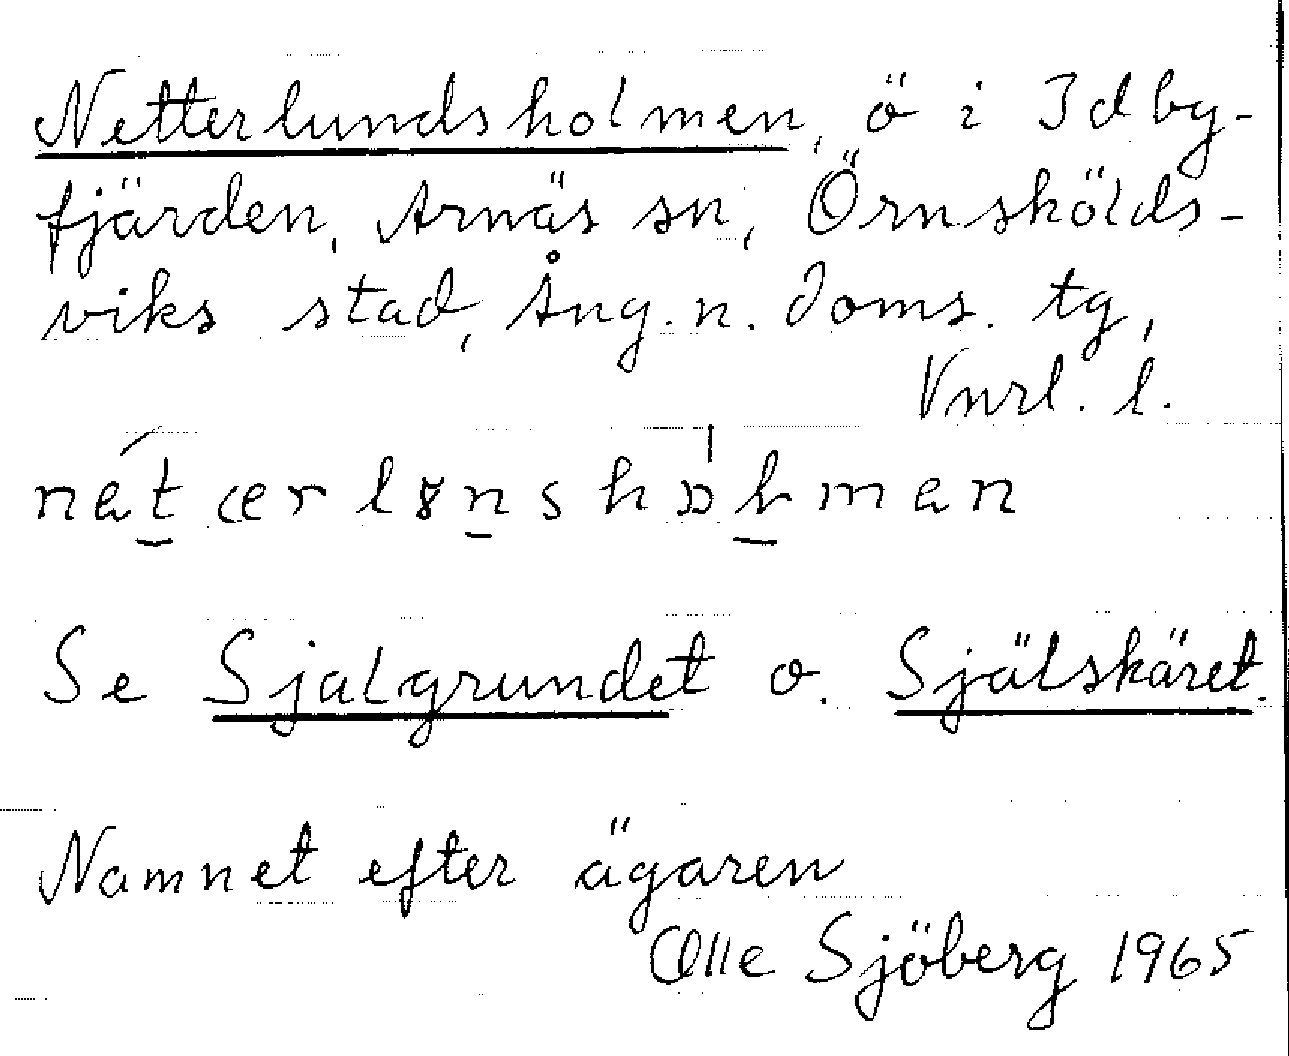 Netterlundsholmen, ö i Idby-
fjärden, Arnäs sn, Örnskölds-
viks stad, Ång. n. doms. tg,
Vnrl. l.
Se Sjalgrundet o. Själskäret.
Namnet efter ägaren
Olle Sjöberg 1965